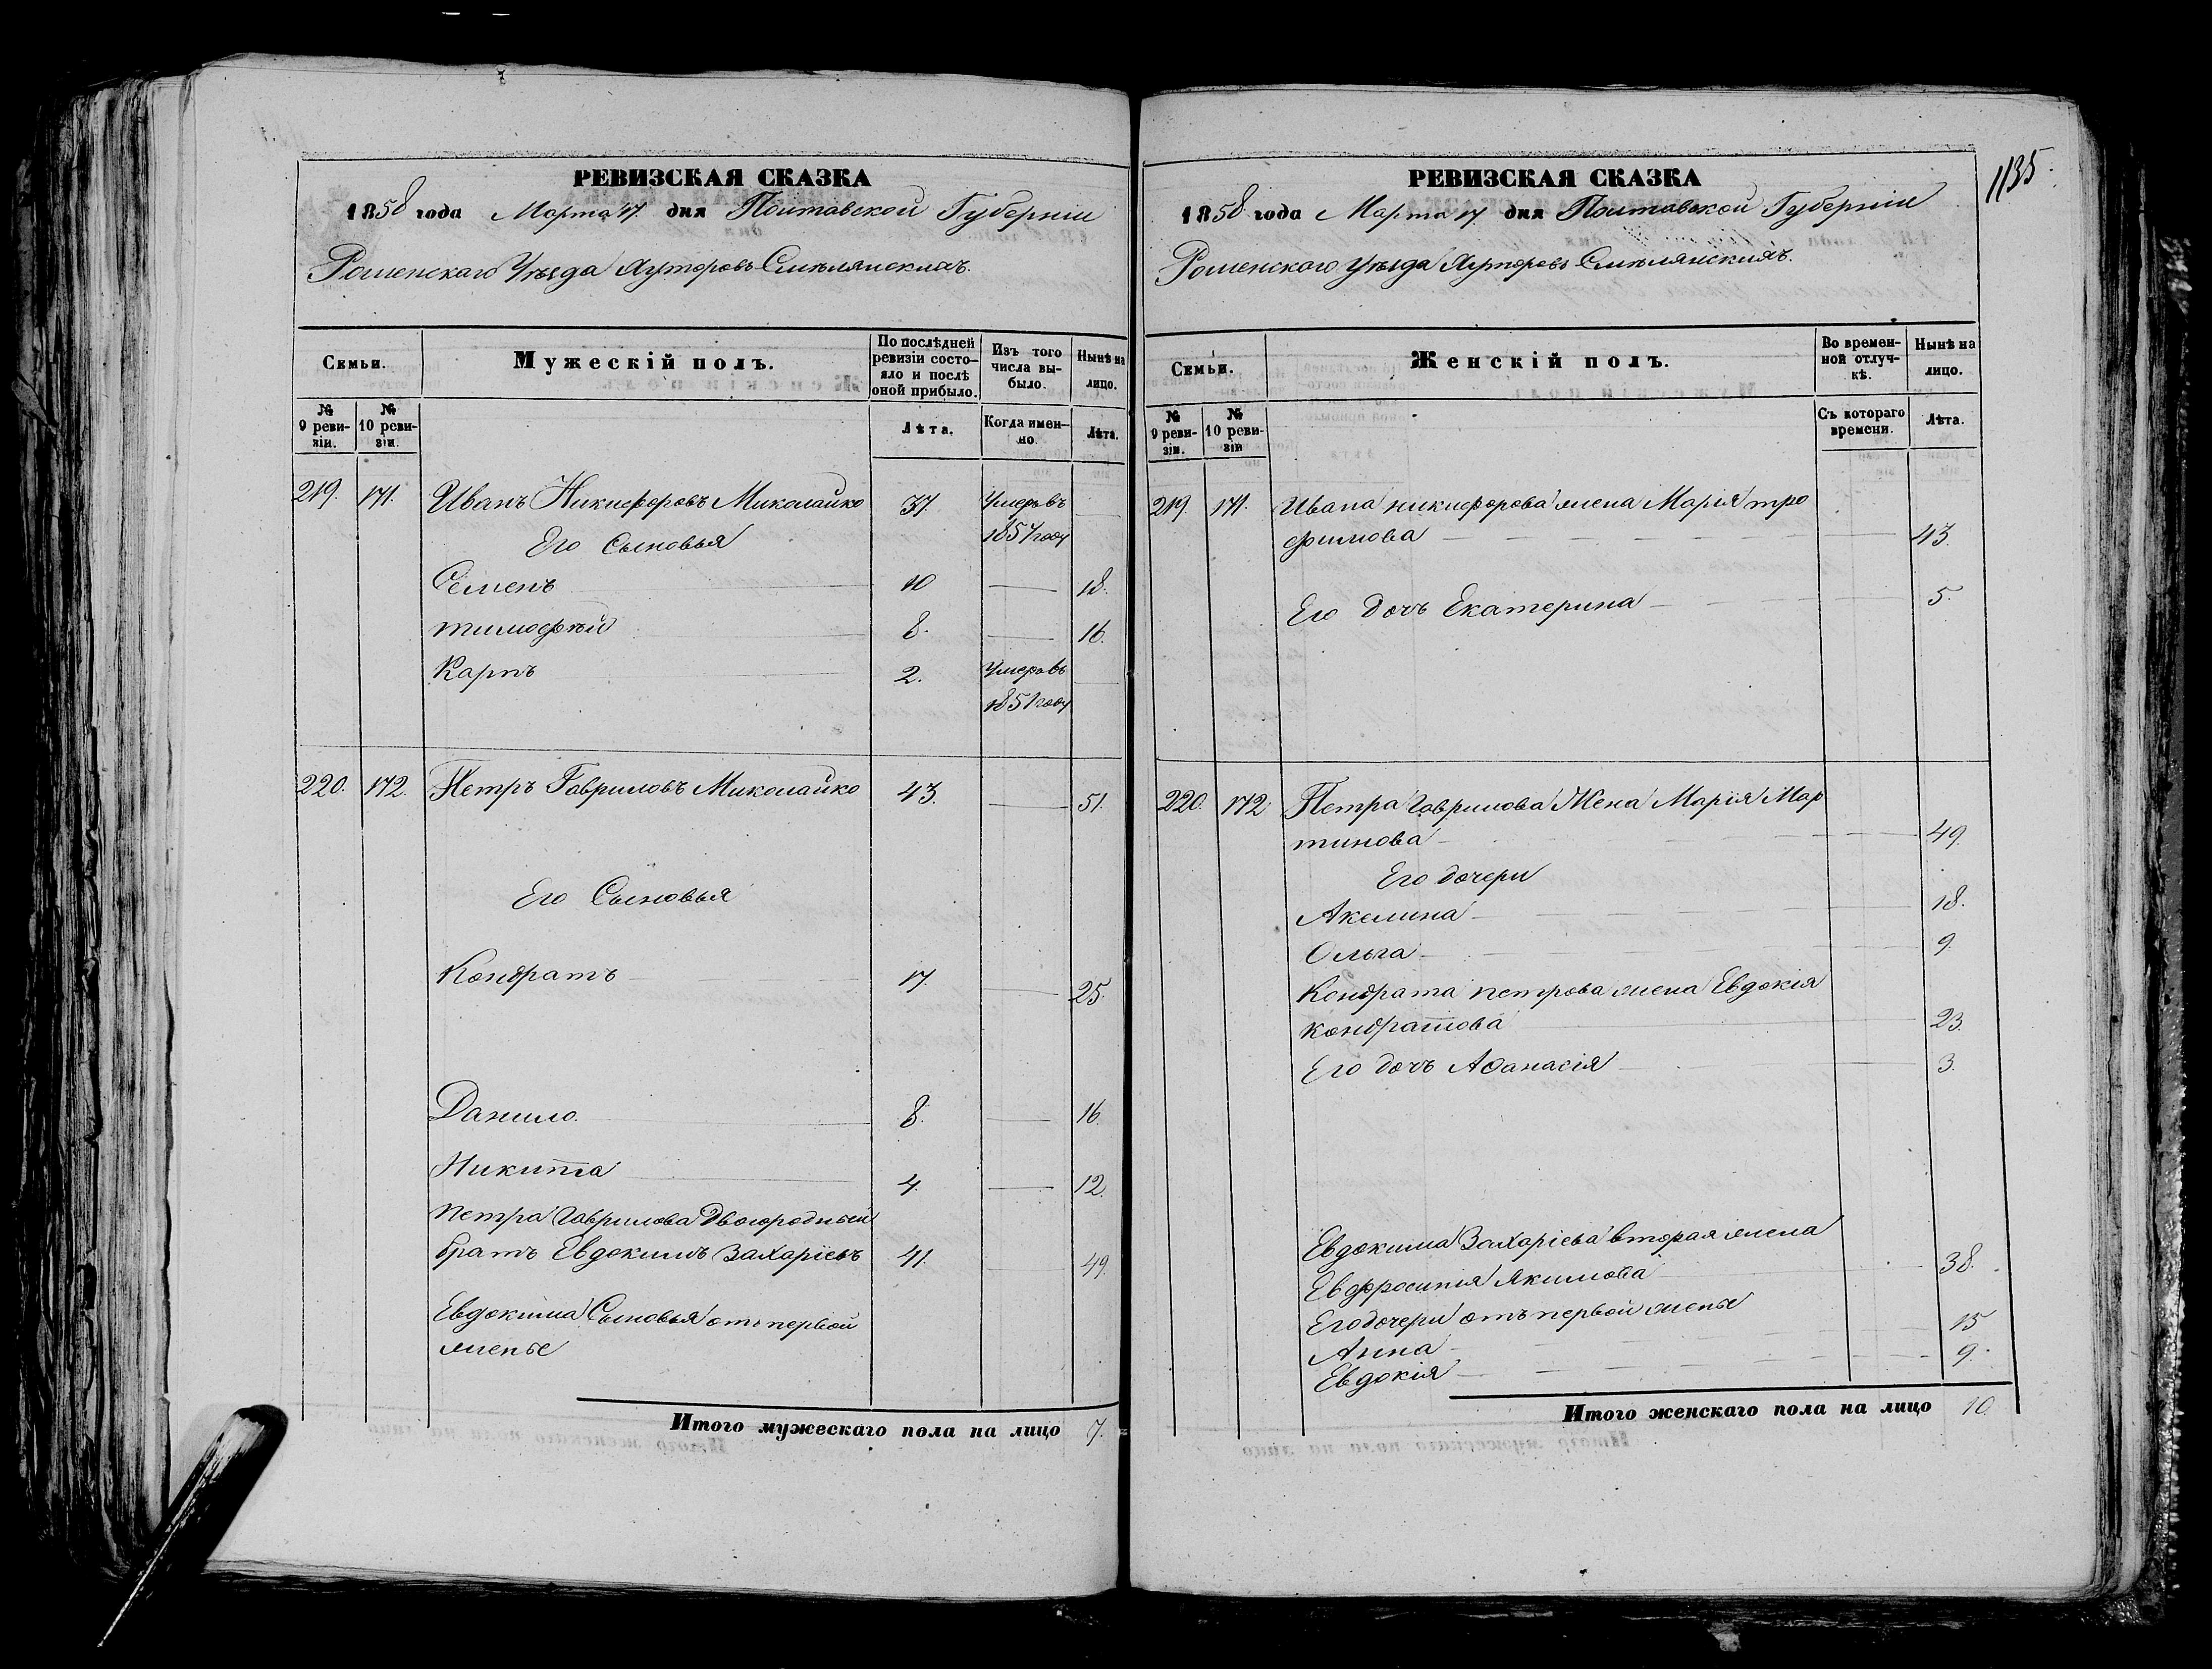 РЕВИЗСКАЯ СКАЗКА
1858 года Марта 17 дня Полтавской Губерніи
Роменскаго Уѣзда Хуторовъ Смѣлянскихъ.
Семьи.
Мужескій полъ.
По послѣдней ревизіи состо-
яло и послѣ
оной прибыло.
Изъ того
числа вы-
было.
Нынѣ на
лицо.
№
9 реви-
зіи.
№
10 реви-
зіи.
Лѣта.
Когда имен-
но.
Лѣта.
219. 171. Иванъ Никифоровъ Миколайко 37 Умеръ въ
Его Сыновья 1857 году
Семенъ 10 18.
тимофѣй 8. 16.
Карпъ 2. Умеръ въ
1851 году
220. 172. Петръ Гавриловъ Миколайко 43. 51.
Его Сыновья
Кондратъ 17. 25.
Данило. 8. 16.
Никита 4. 12.
Петра Гаврилова Двоюродный
братъ Евдокимъ Захаріевъ 41. 49.
Евдокима Сыновья отъ первой
жены
Итого мужескаго пола на лицо 7.
1135
РЕВИЗСКАЯ СКАЗКА
1858 года Марта 17 дня Полтавской Губерніи
Роменскаго Уѣзда Хуторовъ Смѣлянскихъ.
Семьи.
Женскій полъ.
Во времен-
ной отлуч-
кѣ.
Нынѣ на
лицо.
№
9 реви-
зіи.
№
10 реви-
зіи
Съ котораго
времени.
Лѣта.
219. 171. Ивана никифорова жена Марія тро
фимова 43.
Его дочь Екатерина 5.
220. 172 Петра Гаврилова Жена Марія Мар
тинова 49.
Его дочери
Акелина 18.
Ольга 9.
Кондрата петрова жена Евдокія
кондратова 23.
Его дочь Афанасія 3.
Евдокима Захаріева вторая жена
Евфросинія Якимова 38.
Его дочери отъ первой жены
Анна 15
Евдокія 9.
Итого женскаго пола на лицо 10.